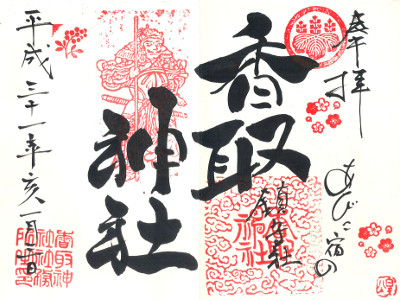 奉拝
あびこ宿の
鎮守社
香取
神社
平成三十一年亥一月
香取神
社社務